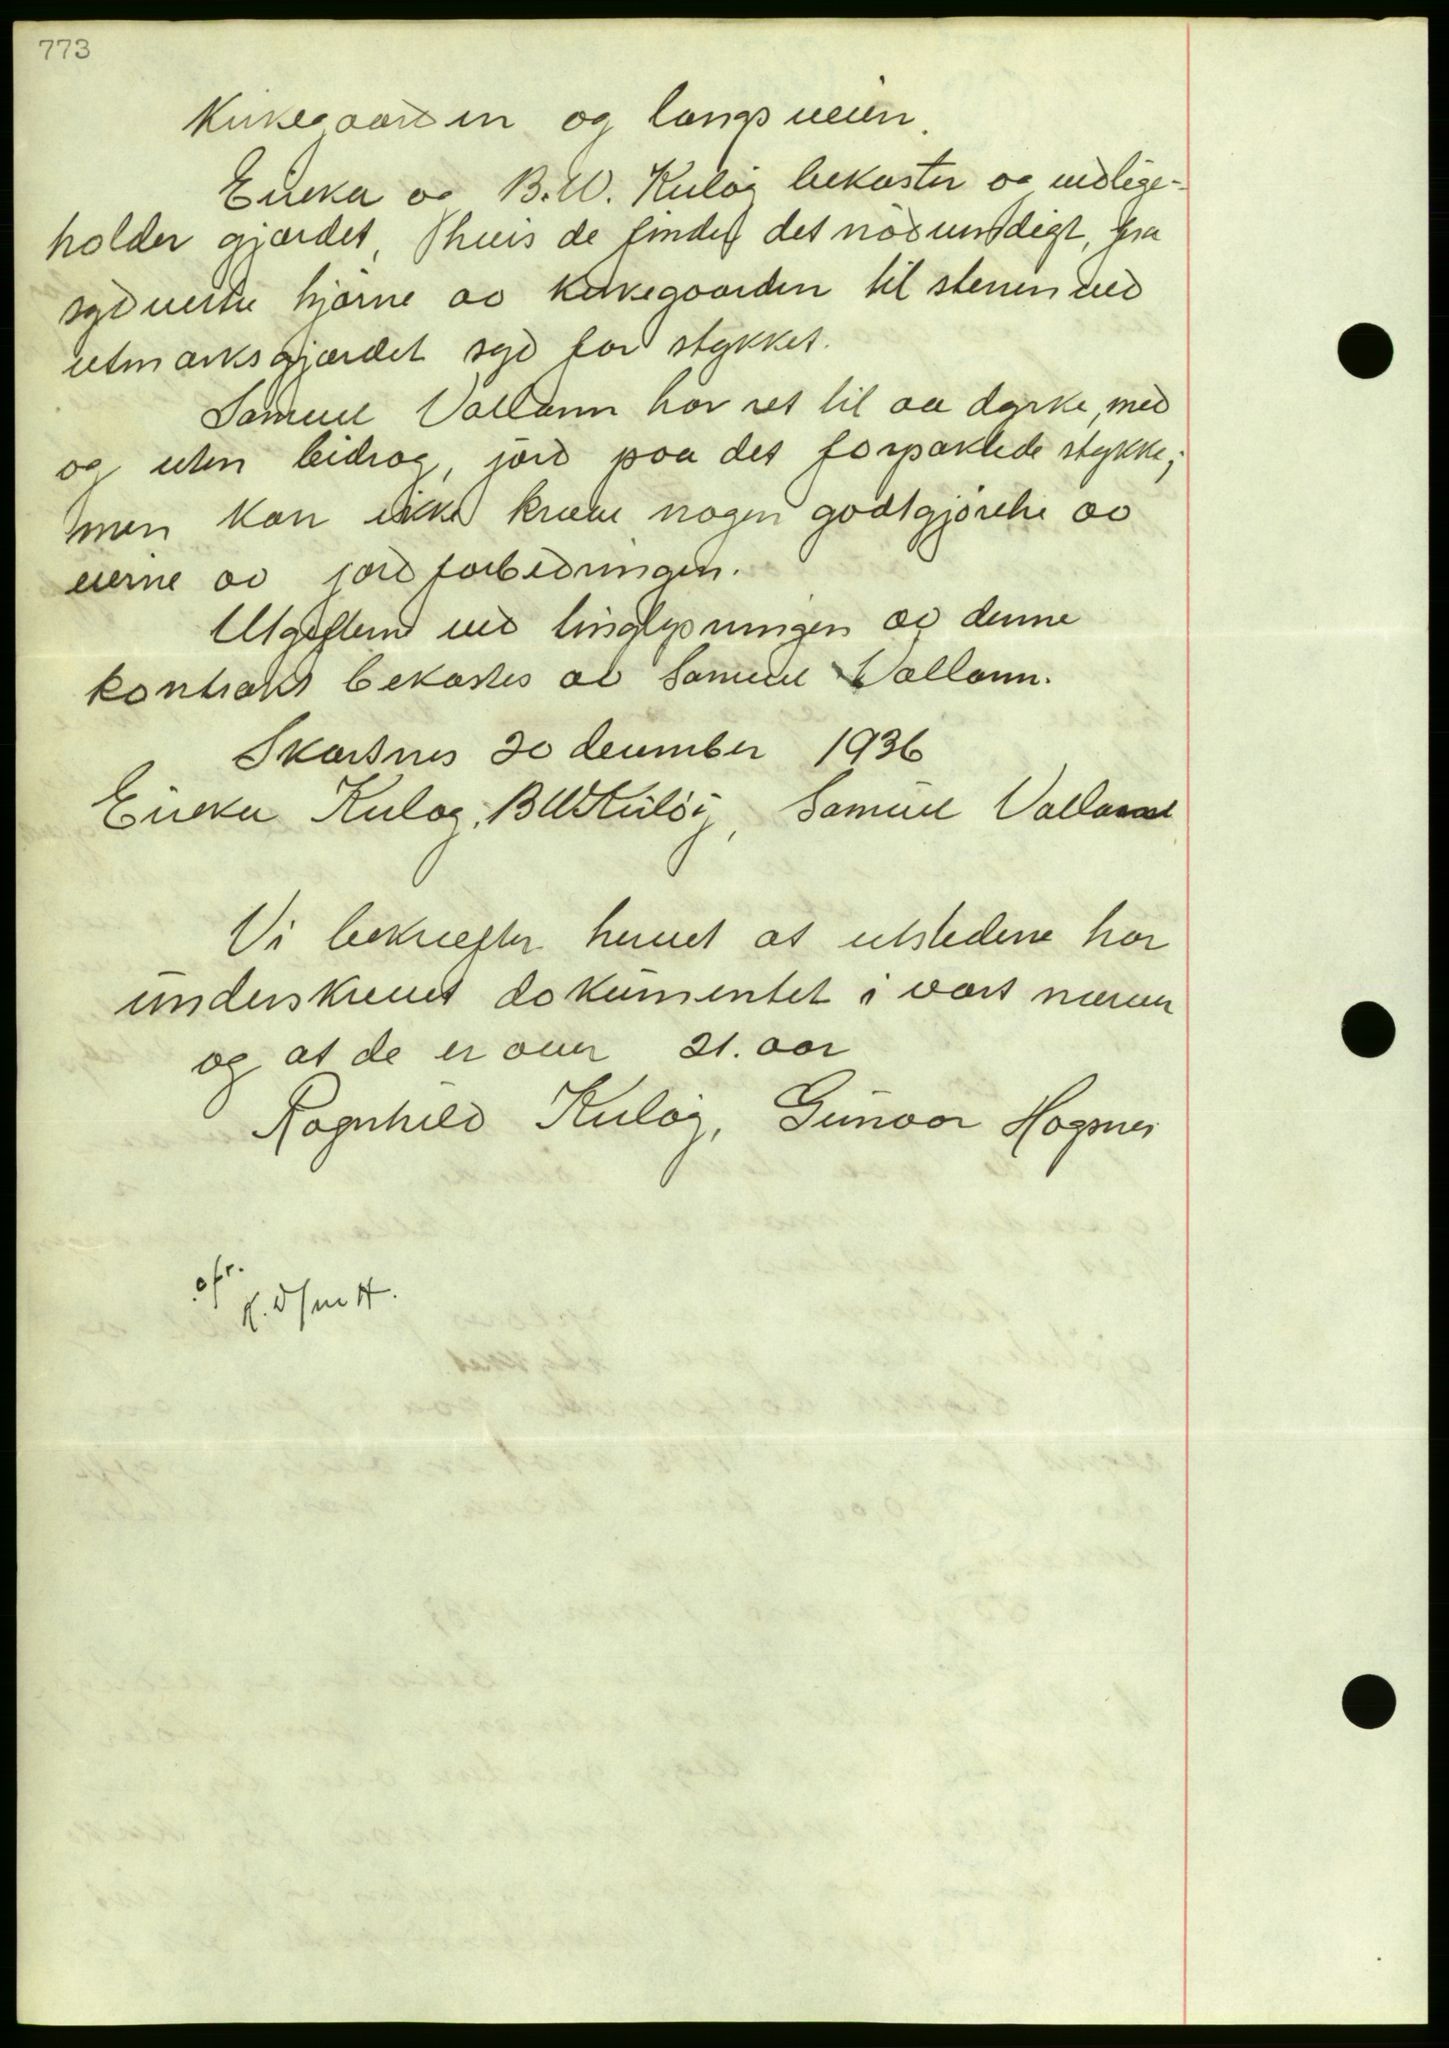 773
Kirkegaarden og langs veien.
Eireka og B.W. Kuløy bekoster og vedlige-
holder gjærdet, hvis de finder det nødvendigt, fra
sydvestre hjørne av kirkegaarden til stenen ved
utmarksgjærdet syd for stykket.
Samuel Vallann har ret til aa dyrke, med
og uten bidrag, jord paa det forpaktede stykke;
men kan ikke kræve nogen godtgjørelse av
eierne av jordforbedringen.
Utgiftene ved tinglysningen av denne
kontrakt bekostes av Samuel Vallann.
Skarsnes 20 december 1936
Eireka Kuløy, B W Kuløy, Samuel Vallann
Vi bekræfter herved at utstederne har
underskrevet dokumentet i vort nærvær
og at de er over 21. aar
Ragnhild Kuløy, Gunvor Hognes